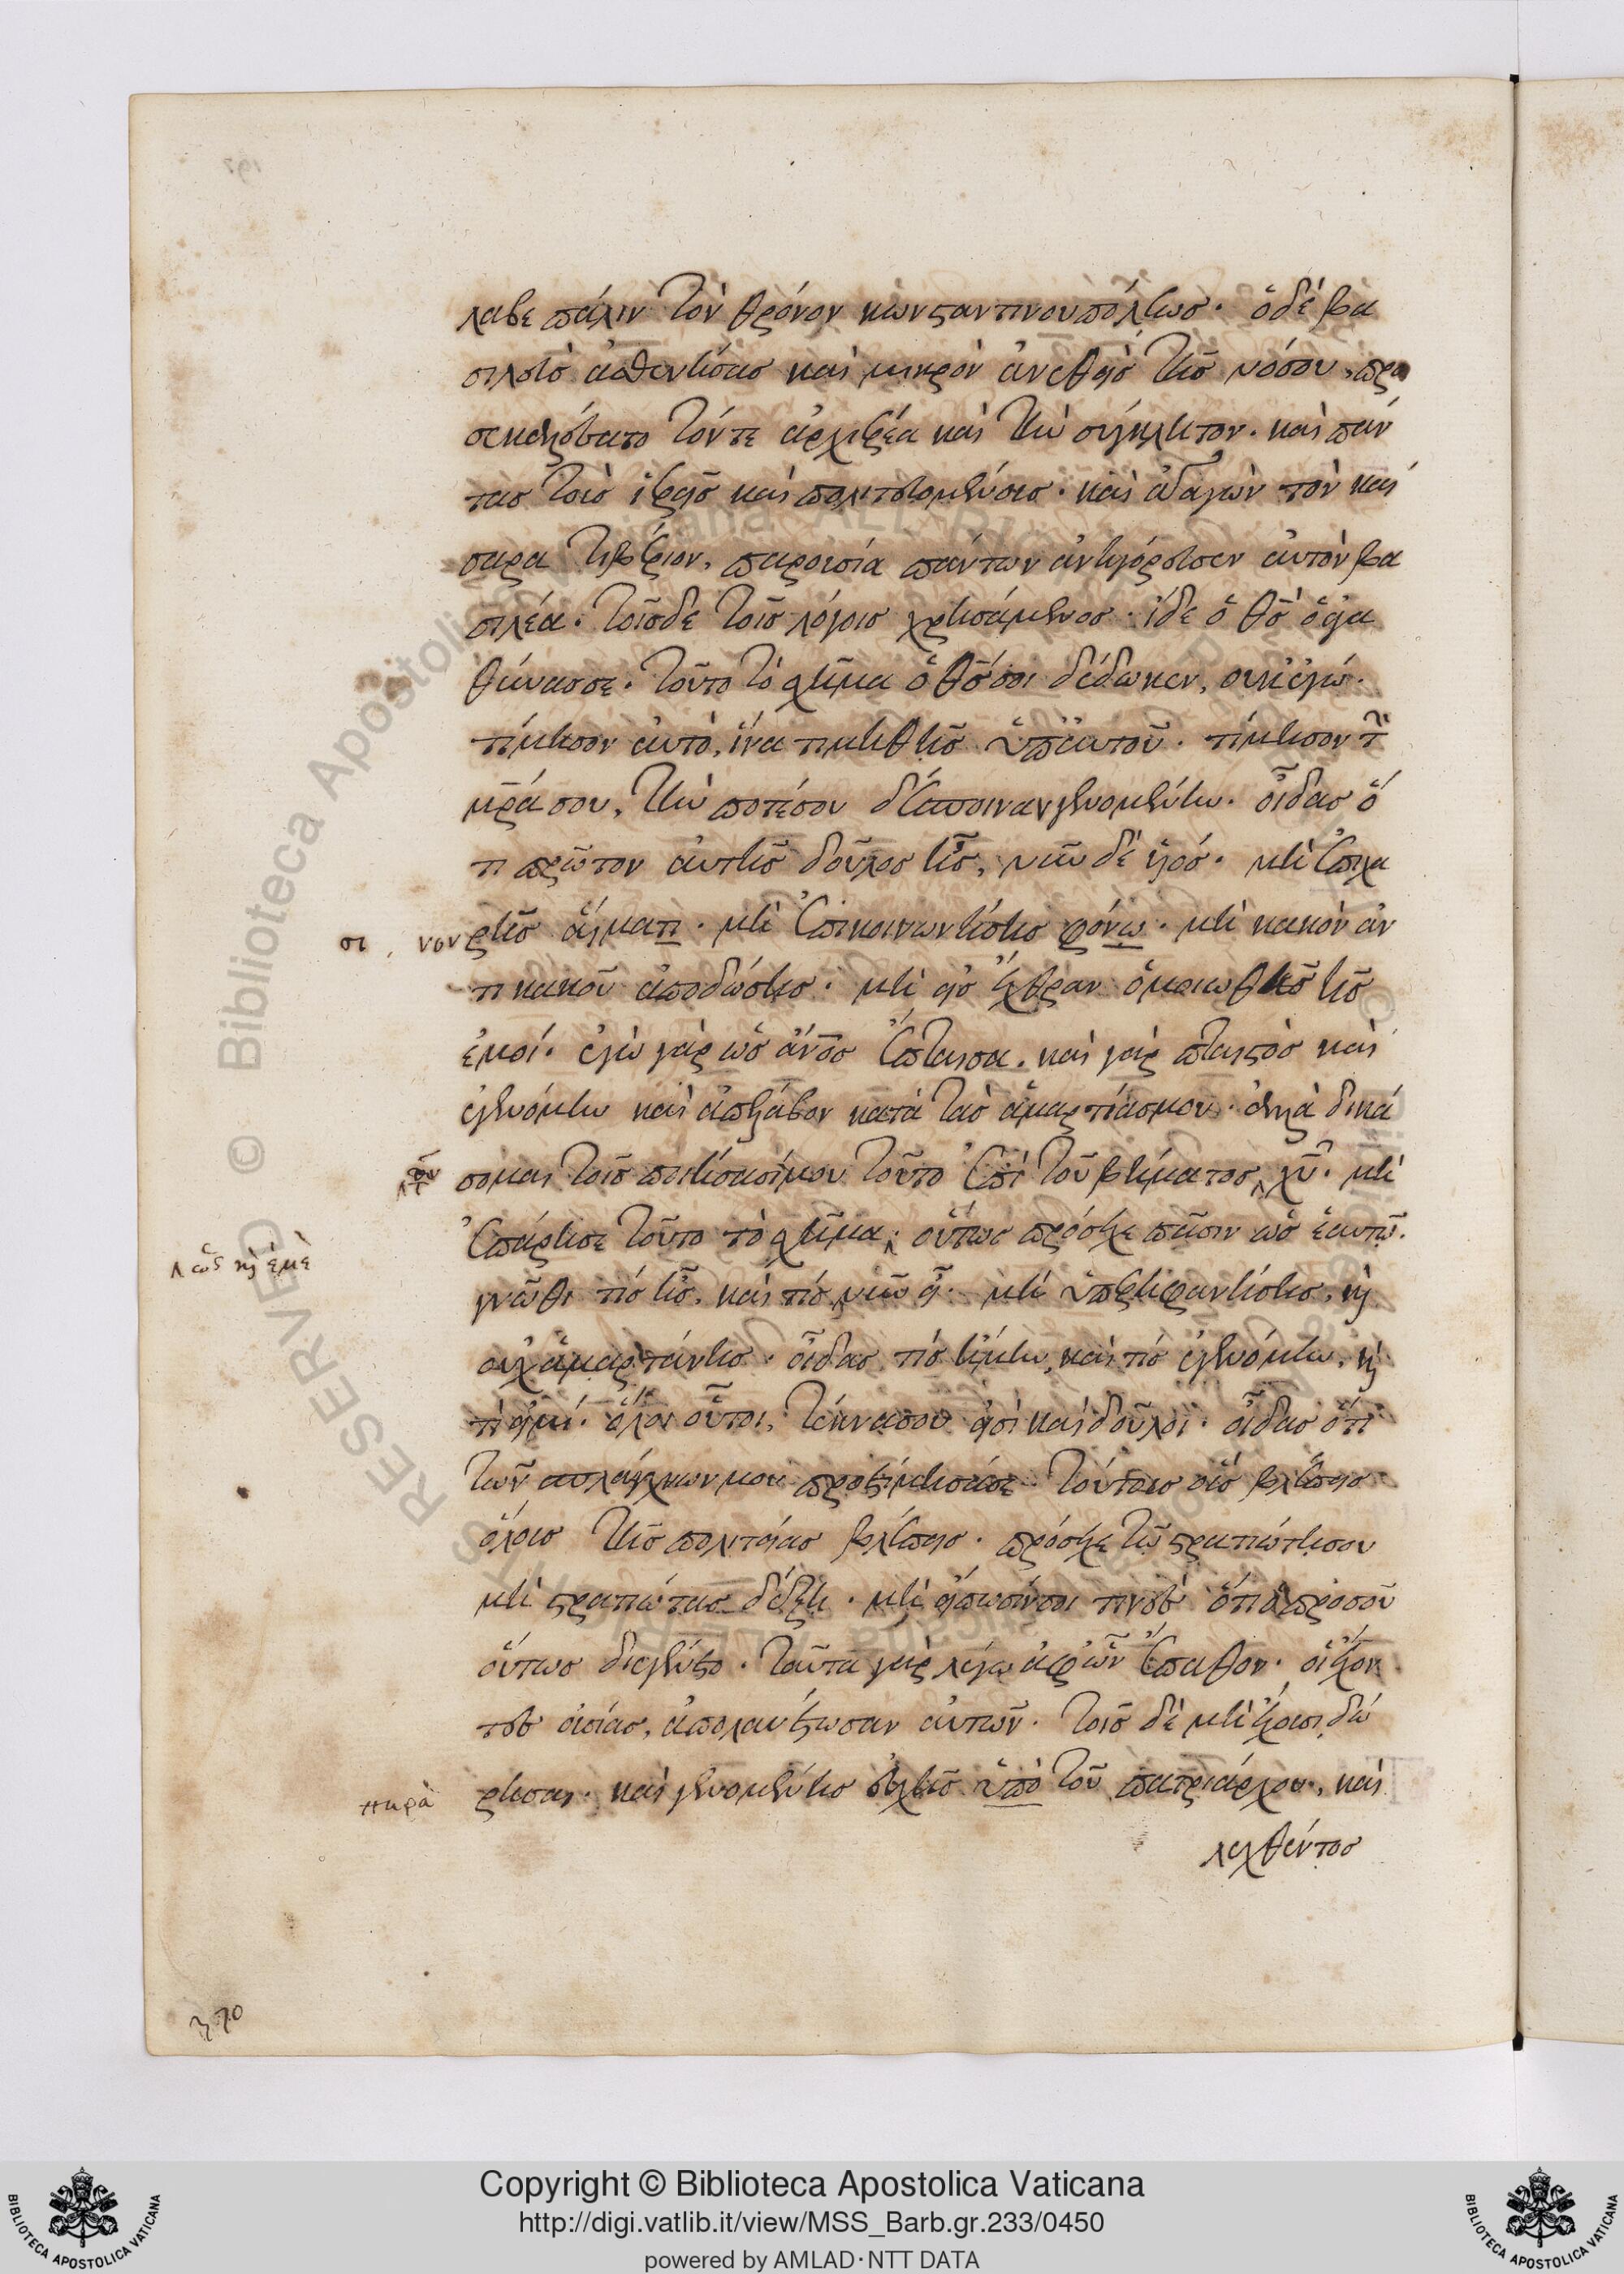 λαβε πάλιν τὸν θρόνον κωνσταντινουπόλεως. ὁ δὲ βα
σιλεὺς ἀσθενήσας καὶ μικρὸν ἀνεθεὶς τῆς νόσου, προ
σεκαλέσατο τόν τε ἀρχιερέα καὶ τὴν σύγκλητον. καὶ πάν
τας τοὺς ἱερεῖς καὶ πολιτευομένους. καὶ ἀγαγὼν τὸν καί
σαρα τιβέριον, παρουσία πάντων ἀνηγόρευσεν αὐτὸν βα
σιλέα. τοῖσδε τοῖς λόγοις χρησάμενος. ἴδε ὁ θς ὁ ἀγα
θύνας σε. τοῦτο τὸ σχῆμα ὁ θς σοι δέδωκεν, οὐκ ἐγώ.
τίμησον αὐτὸ, ἵνα τιμηθῆς ὑπ' αὐτοῦ. τίμησον τὴν
μρα σου, τὴν ποτέ σου δέσποιναν γενομένην. οἶδας ὅ
τι πρῶτον αὐτῆς δοῦλος ἦς, νῦν δὲ υἱός. μὴ ἐπιχα
ρῆς αἵματι. μὴ ἐπικοινωνήσης φόνω. μὴ κακὸν ἀν
σι, νον
τι κακοῦ ἀποδώσης. μὴ εἰς ἔχθραν ὁμοιωθῆς τῆς
ἐμοί. ἐγὼ γὰρ ὡς ἄνος ἔπταισα. καὶ γὰρ πταιστὸς καὶ
ἐγενόμην καὶ ἀπέλαβον κατὰ τὰς ἁμαρτίας μου. ἀλλὰ δικά
σομαι τοῖς ποιήσασί μου τοῦτο ἐπὶ τοῦ βήματος χυ. μὴ
τοῦ
ἐπάρη σε τοῦτο τὸ σχῆμα. οὕτως πρόσεχε πᾶσιν ὡς ἑαυτῶ.
ὡς καὶ ἐμὲ
γνῶθι τίς ἦς, καὶ τίς νῦν εἶ. μὴ ὑπερηφανήσης, καὶ
οὐχ ἁμαρτάνης. οἶδας τίς ἤμην, καὶ τίς ἐγενόμην, καὶ
τί εἰμί. ὅλοι οὗτοι, τέκνα σου εἰσὶ καὶ δοῦλοι. οἶδας ὅτι
τῶν σπλάγχνων μου προετίμησά σε. τούτους οὓς βλέπεις
ὅλους τῆς πολιτείας βλέπεις. πρόσεχε τῶ στρατιώτη σου
μὴ στρατιώτας δέξη. μὴ εἴπωσίν σοι τινὲς ὅτι ὁ πρὸ σοῦ
οὕτως διεγένετο. ταῦτα γὰρ λέγω ἀφ' ὧν ἔπαθον. οἱ ἔχον
τες οὐσίας, ἀπολαυέτωσαν αὐτῶν. τοῖς δὲ μὴ ἔχουσι, δώ
ρησαι. καὶ γενομένης εὐχῆς ὑπὸ τοῦ πατριάρχου, καὶ
παρὰ
λεχθέντος
370
Copyright © Biblioteca Apostolica Vaticana
http://digi.vatlib.it/view/MSS_Barb.gr.233/0450
powered by AMLAD·NTT DATA
BIBLIOTECA APOSTOLICA VATICANA
BIBLIOTECA APOSTOLICA VATICANA